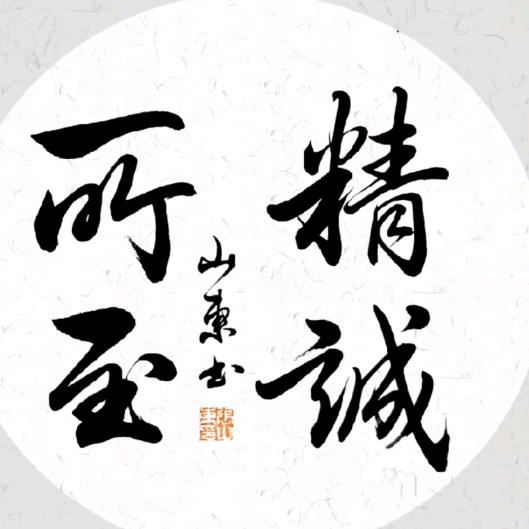 精誠
所至
山東书